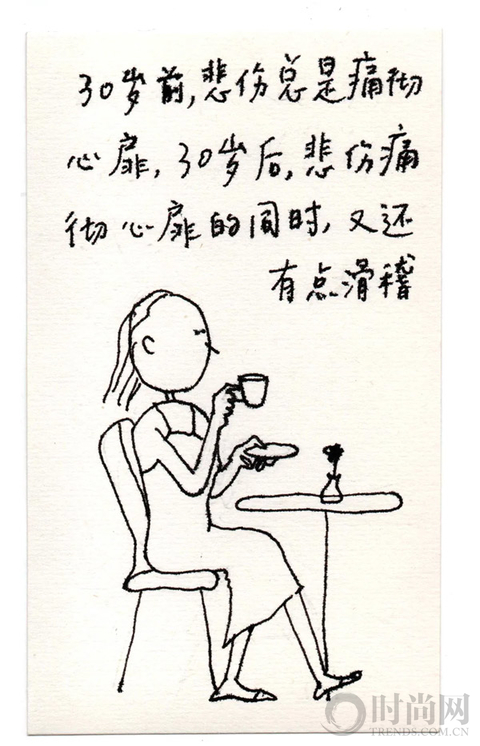 30岁前,悲伤总是痛彻
心扉,30岁后,悲伤痛
彻心扉的同时,又还
有点滑稽
时尚网
TRENDS.COM.CN